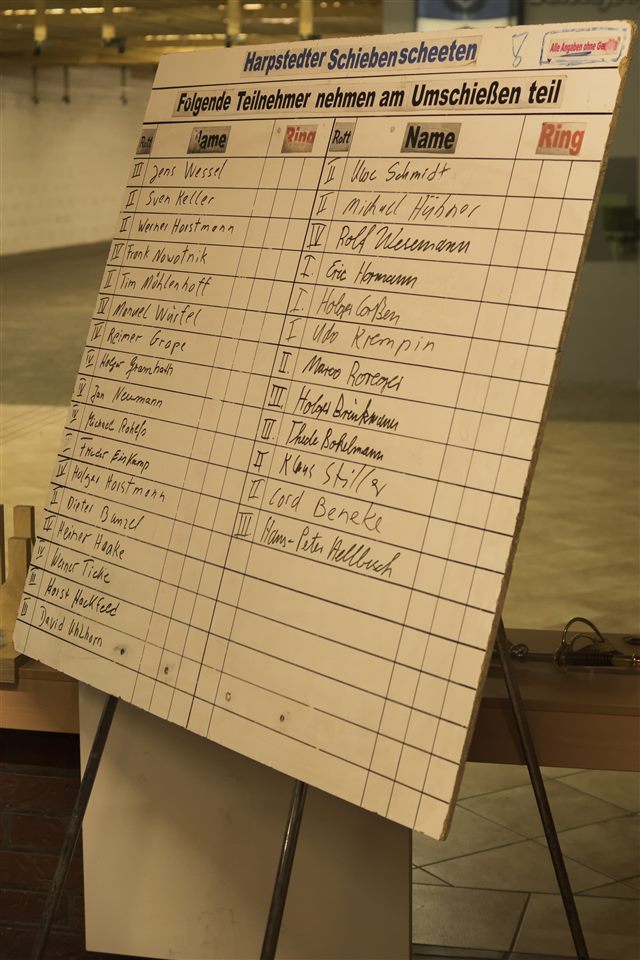 Harpstedter Schiebenscheeten 8 Alle Angaben ohne
Folgende Teilnehmer nehmen am Umschießen teil
Rott Name Ring
III Jens Wessel
II Sven Keller
II Werner Horstmann
IV Frank Nowotnik
II Tim Mühlenhoff
III Manuel Würfel
IV Reimer Grape
IV Holger
IV Jan Neumann
Michael
Frieder Einkamp
IV Holger Horstmann
II Dieter Bunzel
IV Heiner Haake
IV Werner Ticke
III Horst Hackfeld
III David Uhlhorn
Rott Name Ring
II Uwe Schmidt
II Michael Hübner
IV Rolf Wesemann
I. Eric Hormann
I. Holger Corßen
I Udo Krempin
II. Marco
III. Holger Brinkmann
II. Thede Bokelmann
II Klaus Stiller
II Cord Beneke
III Hans-Peter Hellbusch